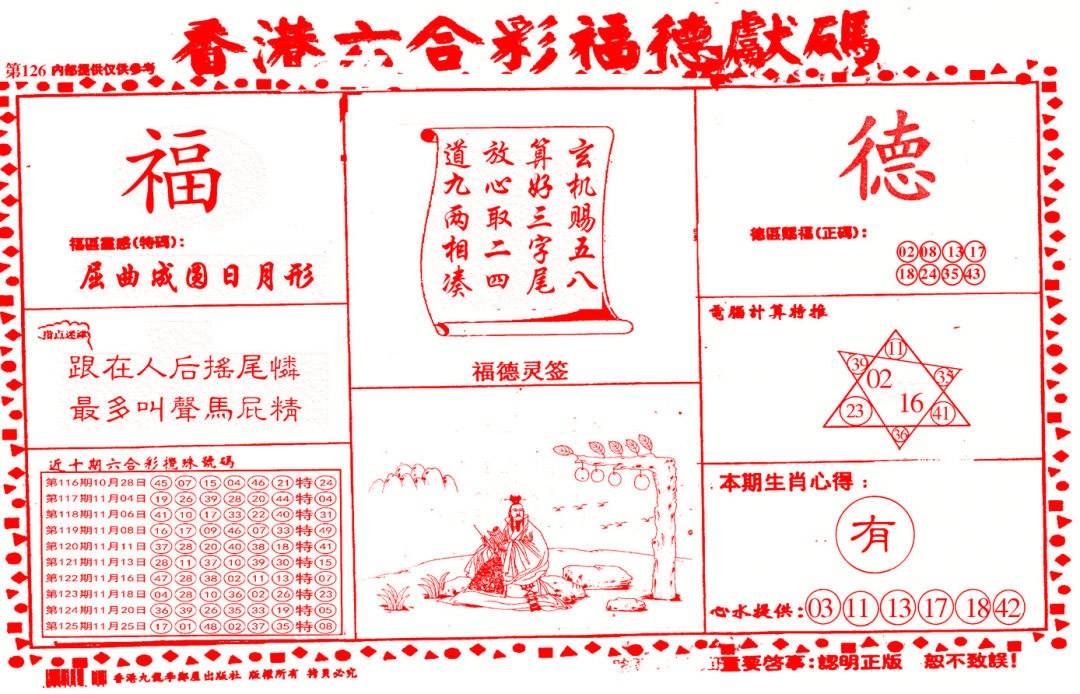 香港六合彩福德獻碼
第126 内部提供仅供参考
福
福區靈感(特碼):
屈曲成圆日月形
指点迷津
跟在人后搖尾憐
最多叫聲馬屁精
近十期六合彩攪珠號碼
第116期10月28日 45 07 15 04 46 21 特 24
第117期11月04日 19 26 39 28 20 44 特 04
第118期11月06日 41 10 17 33 22 40 特 31
第119期11月08日 16 17 09 46 07 33 特 49
第120期11月11日 37 28 20 40 38 18 特 41
第121期11月13日 28 11 37 10 39 30 特 15
第122期11月16日 47 28 38 02 11 13 特 07
第123期11月18日 04 28 10 36 02 26 特 23
第124期11月20日 36 39 26 35 33 19 特 05
第125期11月25日 17 01 48 02 37 35 特 08
玄机赐五八
算好三字尾
放心取二四
道九两相凑
福德灵签
德
德區賜福(正碼):
02 08 13 17
18 24 35 43
電腦計算特推
11
39 02 35
23 16 41
36
本期生肖心得:
有
心水提供: 03 11 13 17 18 42
香港九龍李鄭屋出版社 版權所有 拷貝必究
重要啓事:認明正版 恕不致誤!